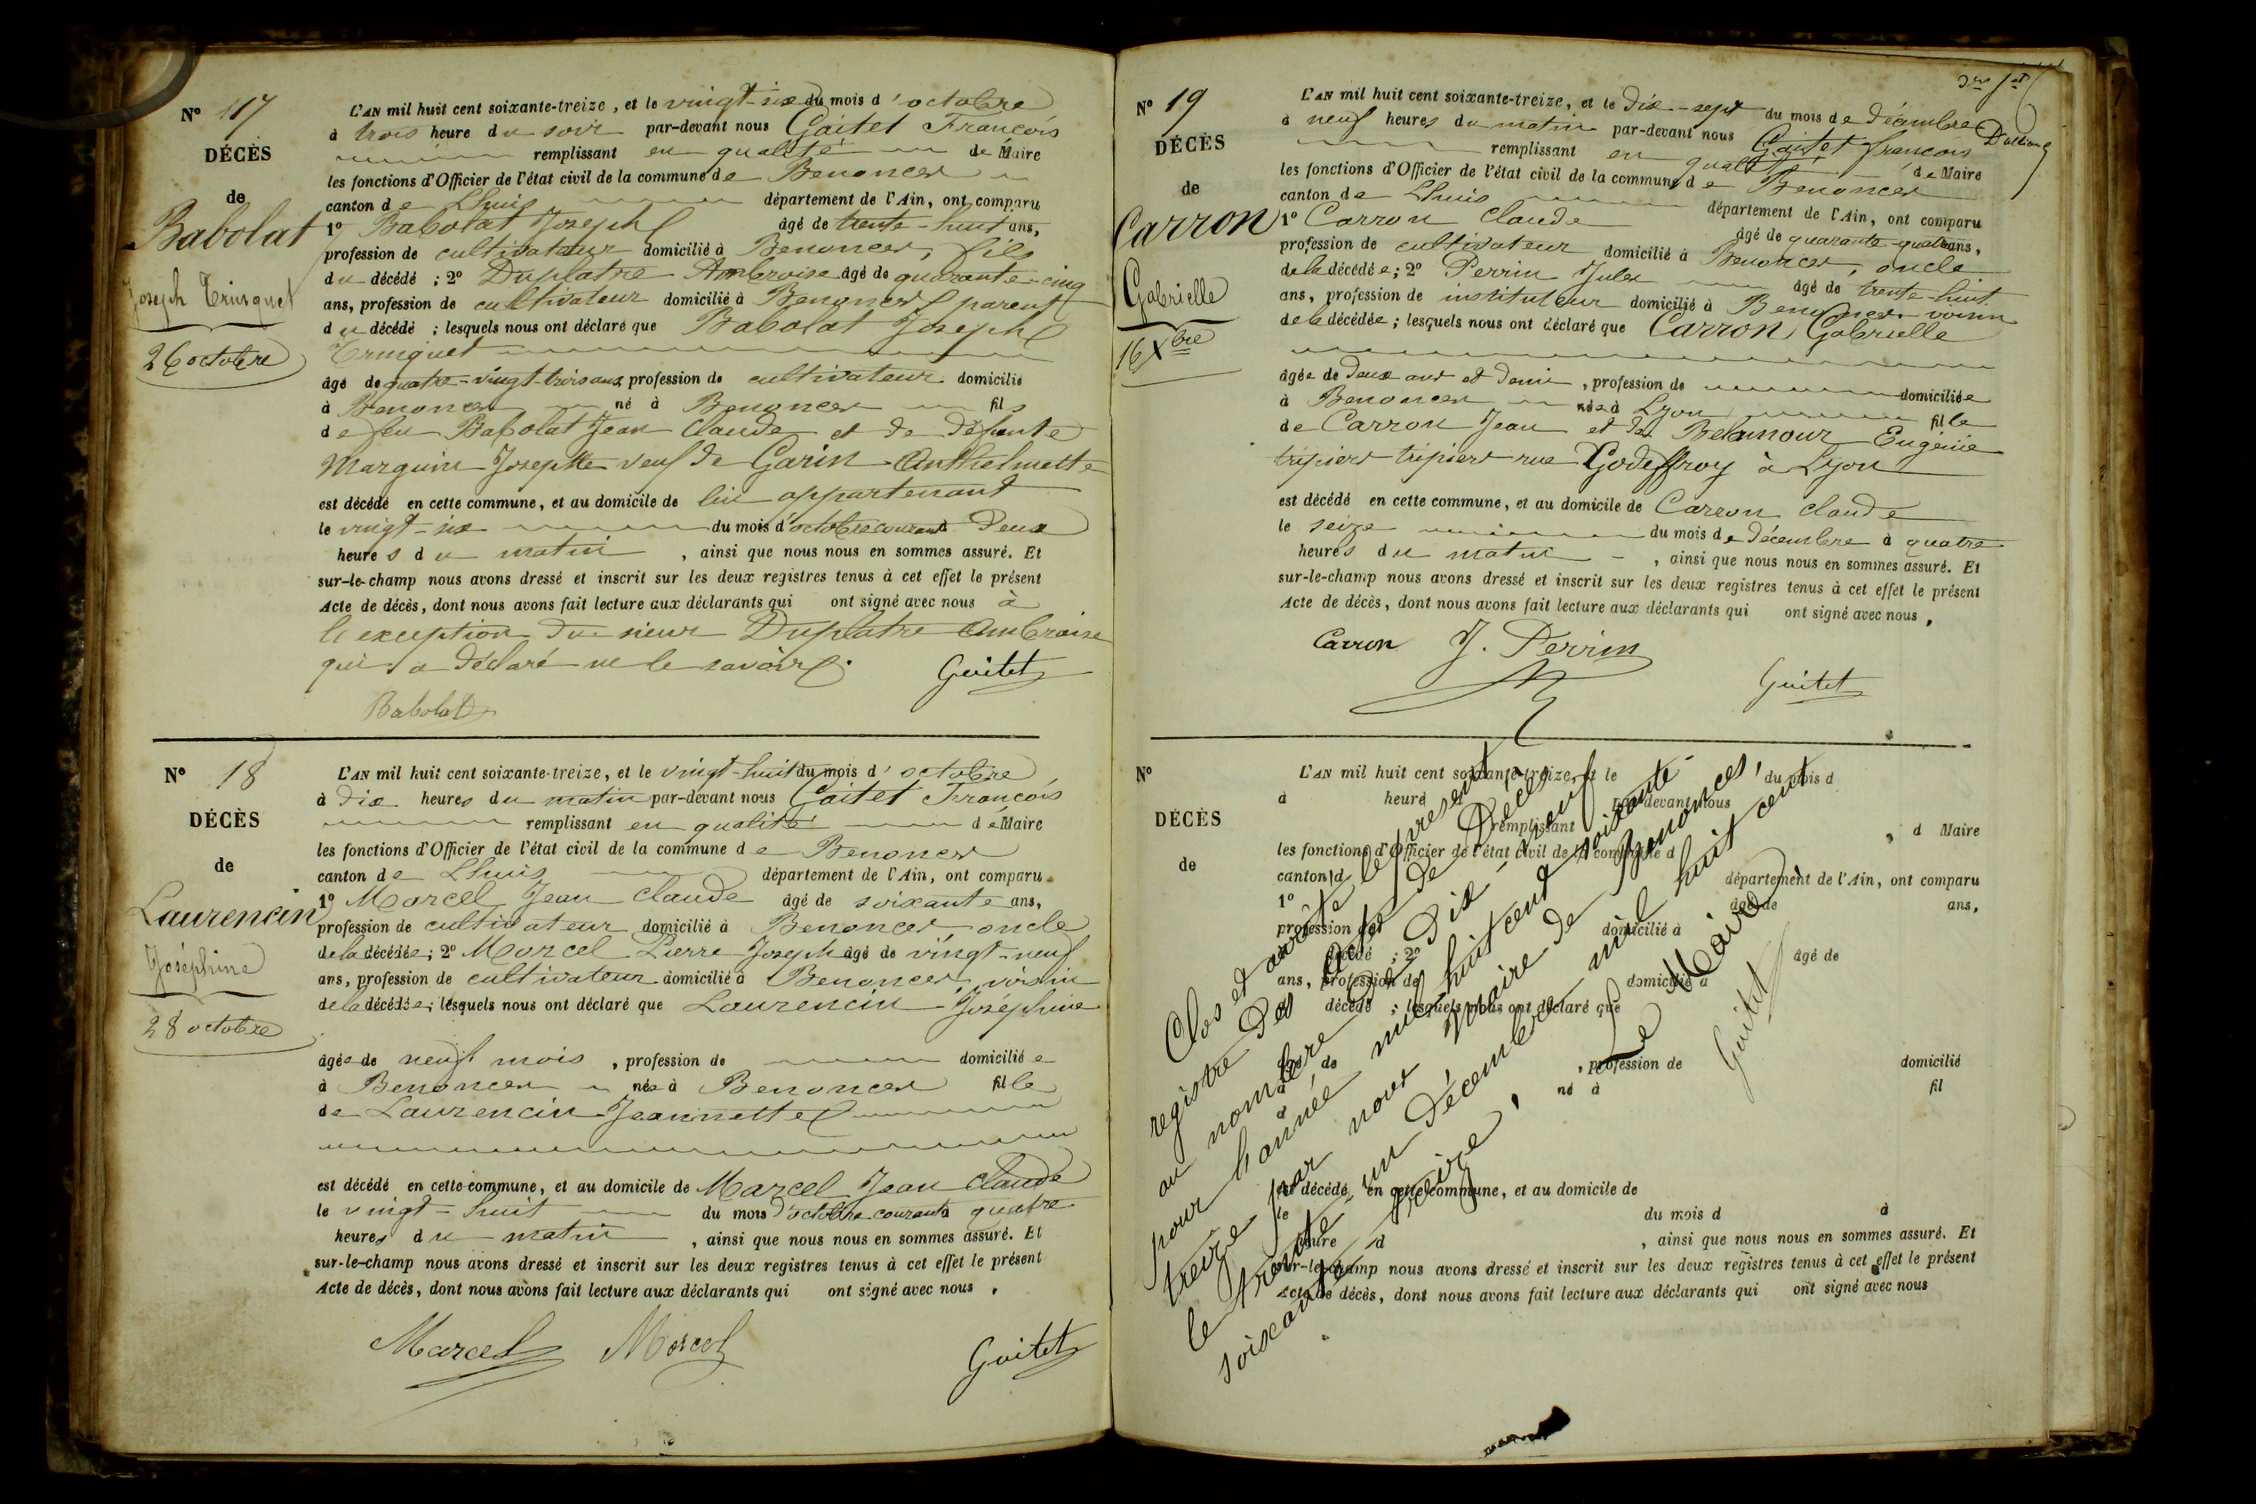 N° 17
DÉCÈS
de
Babolat
Joseph Trinquet
26 octobre
L'AN mil huit cent soixante-treize, et le vingt-six du mois d'octobre
à trois heure du soir par-devant nous Gaitet François
remplissant en qualité de Maire
les fonctions d'Officier de l'état civil de la commune de Benonces
canton de Lhuis département de l'Ain, ont comparu
1° Babolat Joseph âgé de trente-huit ans,
profession de cultivateur domicilié à Benonces, fils
du décédé ; 2° Duplatre Ambroise âgé de quarante-cinq
ans, profession de cultivateur domicilié à Benonces parent
du décédé ; lesquels nous ont déclaré que Babolat Joseph
Trinquet
âgé de quatre-vingt-trois ans, profession de cultivateur domicilié
à Benonces né à Benonces fils
de feu Babolat Jean Claude et de défunte
Marguin Josephte veuf de Garin Anthelmette
est décédé en cette commune, et au domicile de lui appartenant
le vingt-six du mois d'octobre courant à deux
heures du matin, ainsi que nous nous en sommes assuré. Et
sur-le-champ nous avons dressé et inscrit sur les deux registres tenus à cet effet le présent
Acte de décès, dont nous avons fait lecture aux déclarants qui ont signé avec nous à
l'exception du sieur Duplatre Ambroise
qui a déclaré ne le savoir.
Guitet
Babolat
N° 18
DÉCÈS
de
Laurencin
Joséphine
28 octobre
L'AN mil huit cent soixante-treize, et le vingt-huit du mois d'octobre
à dix heures du matin par-devant nous Gaitet François
remplissant en qualité de Maire
les fonctions d'Officier de l'état civil de la commune de Benonces
canton de Lhuis département de l'Ain, ont comparu
1° Marcel Jean Claude âgé de soixante ans,
profession de cultivateur domicilié à Benonces oncle
de la décédée ; 2° Marcel Pierre Joseph âgé de vingt-neuf
ans, profession de cultivateur domicilié à Benonces voisin
de la décédée ; lesquels nous ont déclaré que Laurencin Joséphine
âgée de neuf mois, profession de domiciliée
à Benonces née à Benonces fille
de Laurencin Jeannette
est décédé en cette commune, et au domicile de Marcel Jean Claude
le vingt-huit du mois d'octobre courant à quatre
heures du matin, ainsi que nous nous en sommes assuré. Et
sur-le-champ nous avons dressé et inscrit sur les deux registres tenus à cet effet le présent
Acte de décès, dont nous avons fait lecture aux déclarants qui ont signé avec nous.
Marcel Marcel Guitet
N° 19
DÉCÈS
de
Carron
Gabrielle
16 Xbre
L'AN mil huit cent soixante-treize, et le dix-sept du mois de décembre
à neuf heures du matin par-devant nous Gaitet françois
remplissant en qualité de Maire
les fonctions d'Officier de l'état civil de la commune de Benonces
canton de Lhuis département de l'Ain, ont comparu
1° Carron Claude âgé de quarante-quatre ans,
profession de cultivateur domicilié à Benonces, oncle
de la décédée ; 2° Perrin Jules âgé de trente-huit
ans, profession de instituteur domicilié à Benonces voisin
de la décédée ; lesquels nous ont déclaré que Carron Gabrielle
âgée de deux ans et demi, profession de domiciliée
à Benonces née à Lyon fille
de Carron Jean et de Belamour Eugénie
tripiers tripiers rue Godeffroy à Lyon
est décédé en cette commune, et au domicile de Carron Claude
le seize du mois de décembre à quatre
heures du matin, ainsi que nous nous en sommes assuré. Et
sur-le-champ nous avons dressé et inscrit sur les deux registres tenus à cet effet le présent
Acte de décès, dont nous avons fait lecture aux déclarants qui ont signé avec nous.
Carron J. Perrin
Guitet
N°
DÉCÈS
de
L'AN mil huit cent soixante-treize, et le du mois d
à heure par-devant nous
remplissant d Maire
les fonctions d'Officier de l'état civil de la commune d
canton d département de l'Ain, ont comparu
1° âgé de ans,
profession de domicilié à
d décédé ; 2° âgé de
ans, profession de domicilié à
d décédé ; lesquels nous ont déclaré que
âgé de , profession de domicilié
à né à fil
d
est décédé en cette commune, et au domicile de
le du mois d à
heure d , ainsi que nous nous en sommes assuré. Et
sur-le-champ nous avons dressé et inscrit sur les deux registres tenus à cet effet le présent
Acte de décès, dont nous avons fait lecture aux déclarants qui ont signé avec nous
Clos et arrêté le présent
registre des actes de Décès
au nombre de Dix-neuf
pour l'année mil huit cent soixante
treize par nous Maire de Benonces,
le trente-un Décembre mil huit cent
soixante treize,
Le Maire
Guitet